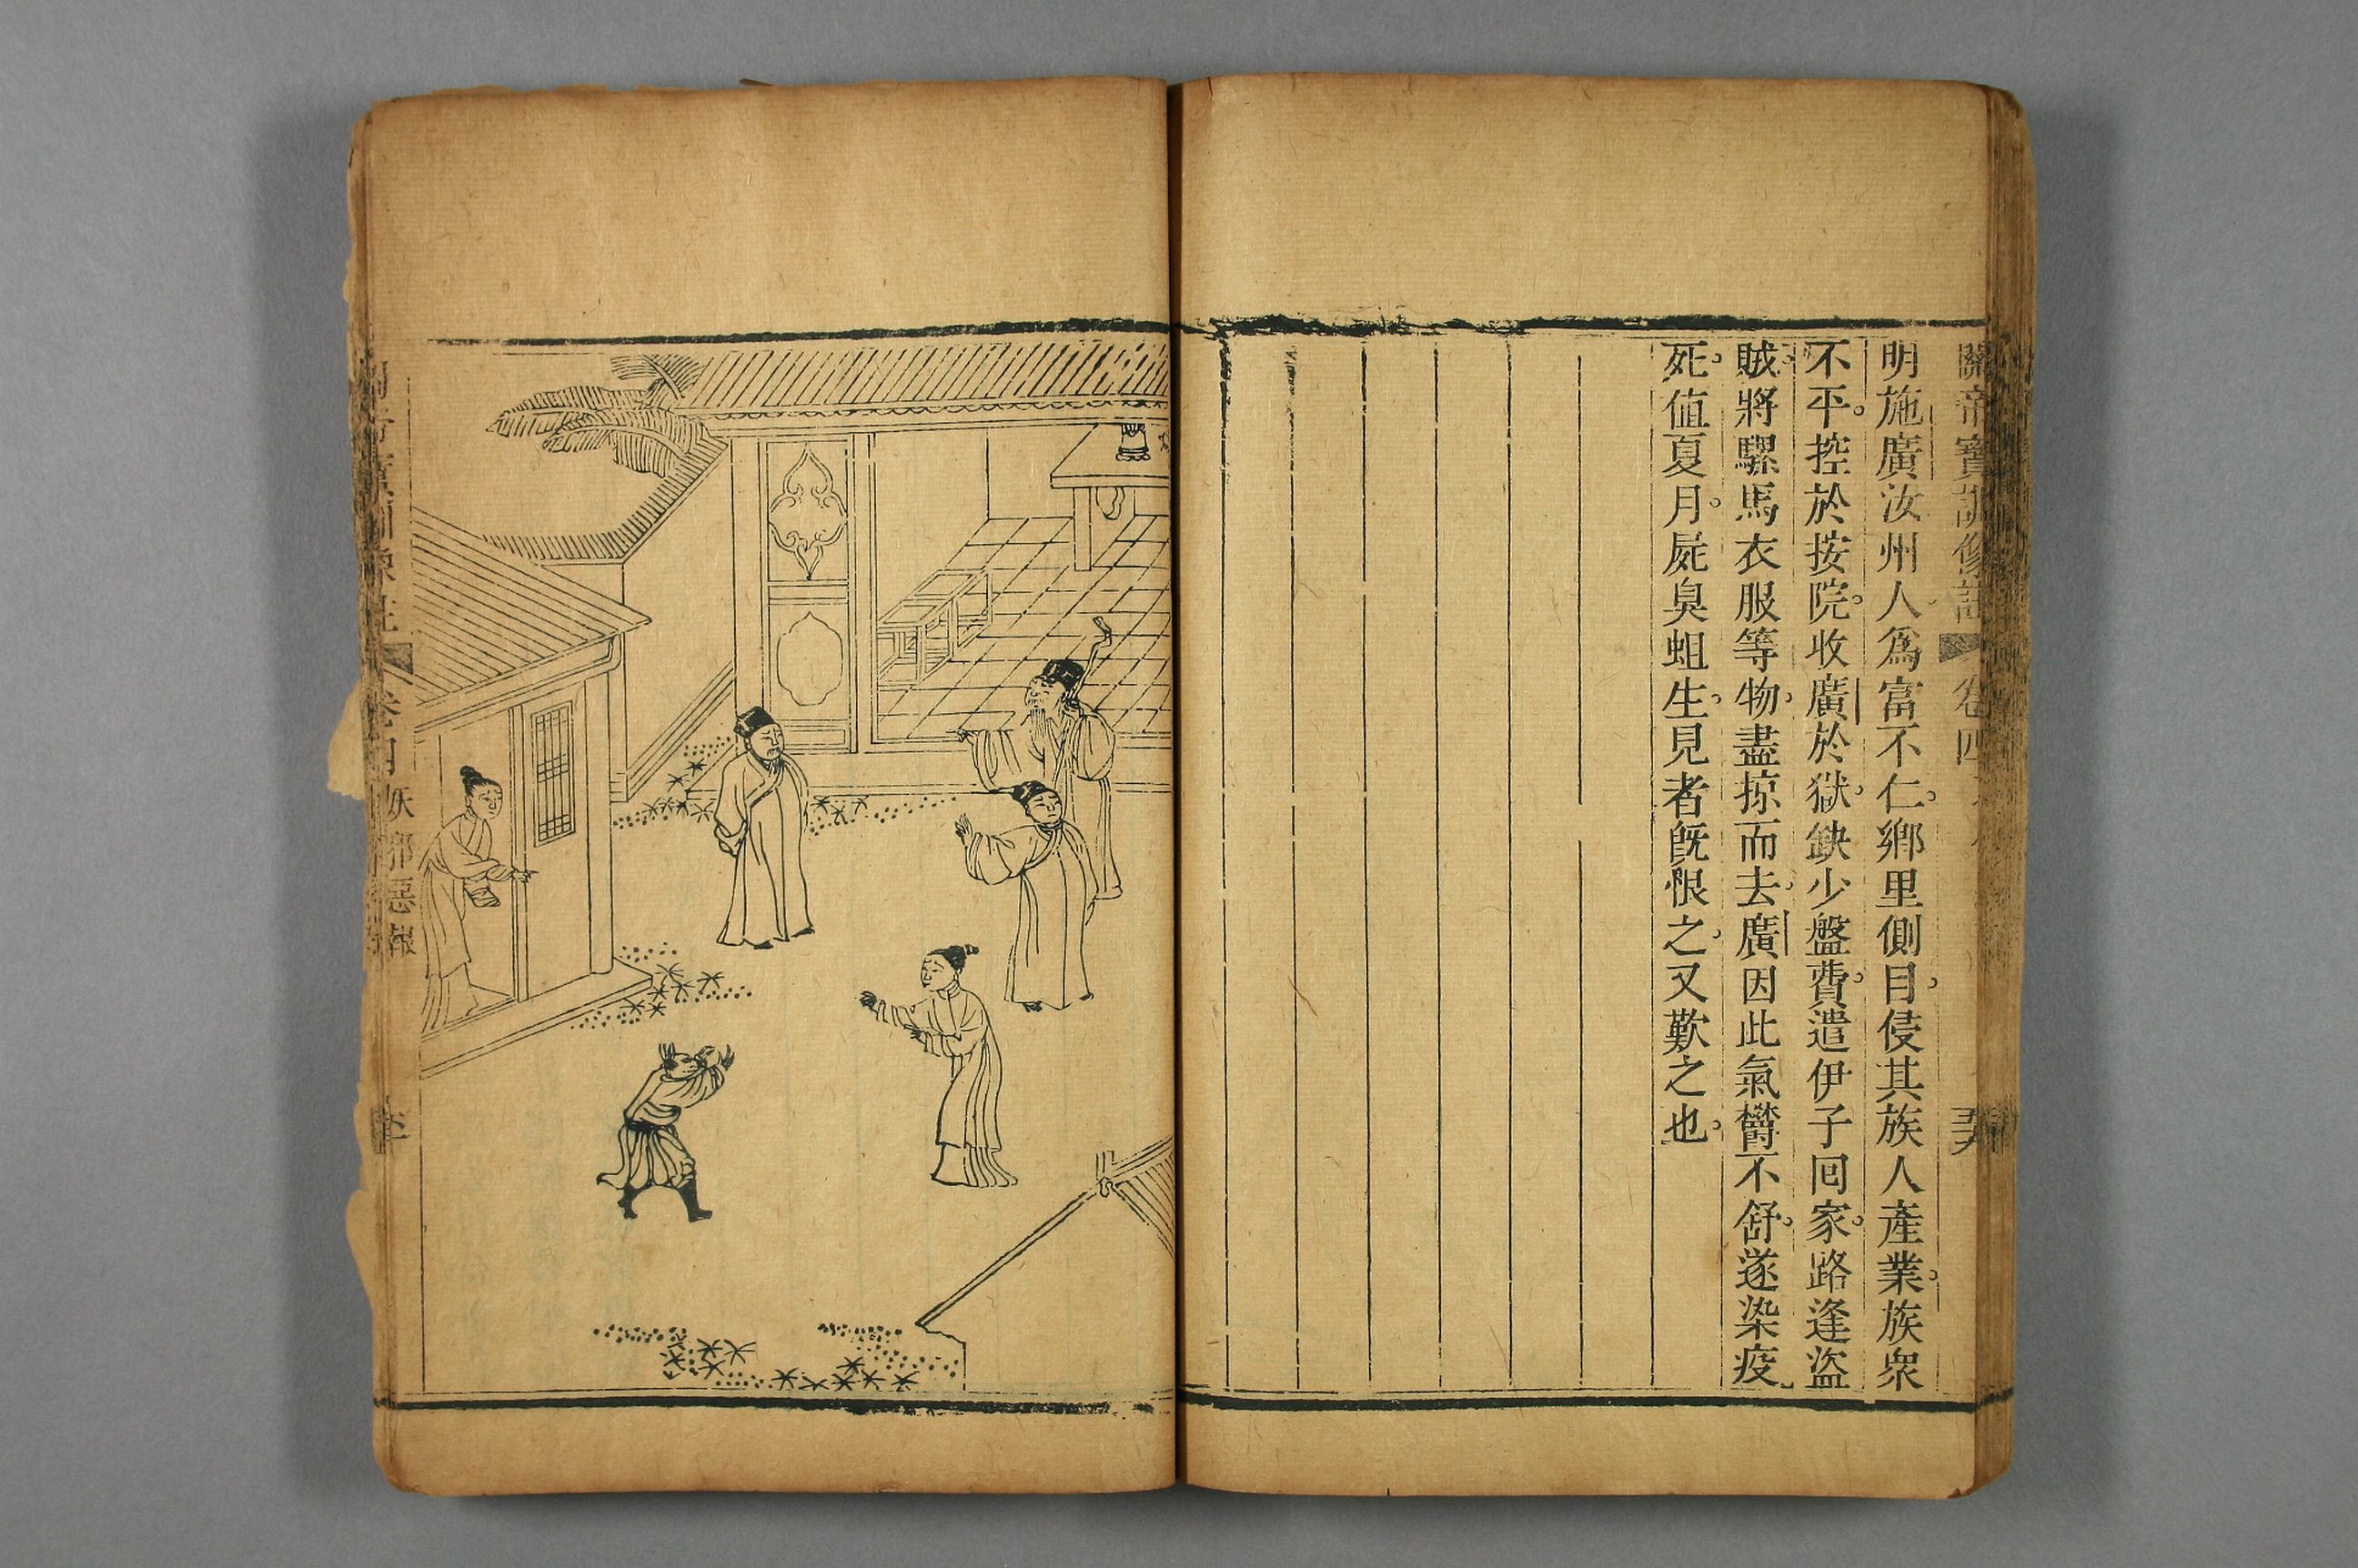 關帝寶訓像註 卷四
明施廣汝州人爲富不仁。鄉里側目。侵其族人產業。族衆
不平。控於按院。收廣於獄。缺少盤費。遣伊子回家。路逢盜
賊。將騾馬衣服等物。盡掠而去。廣因此氣欝不舒。遂染疫
死。值夏月。屍臭蛆生。見者旣恨之。又歎之也。
卷四 妖邪惡報